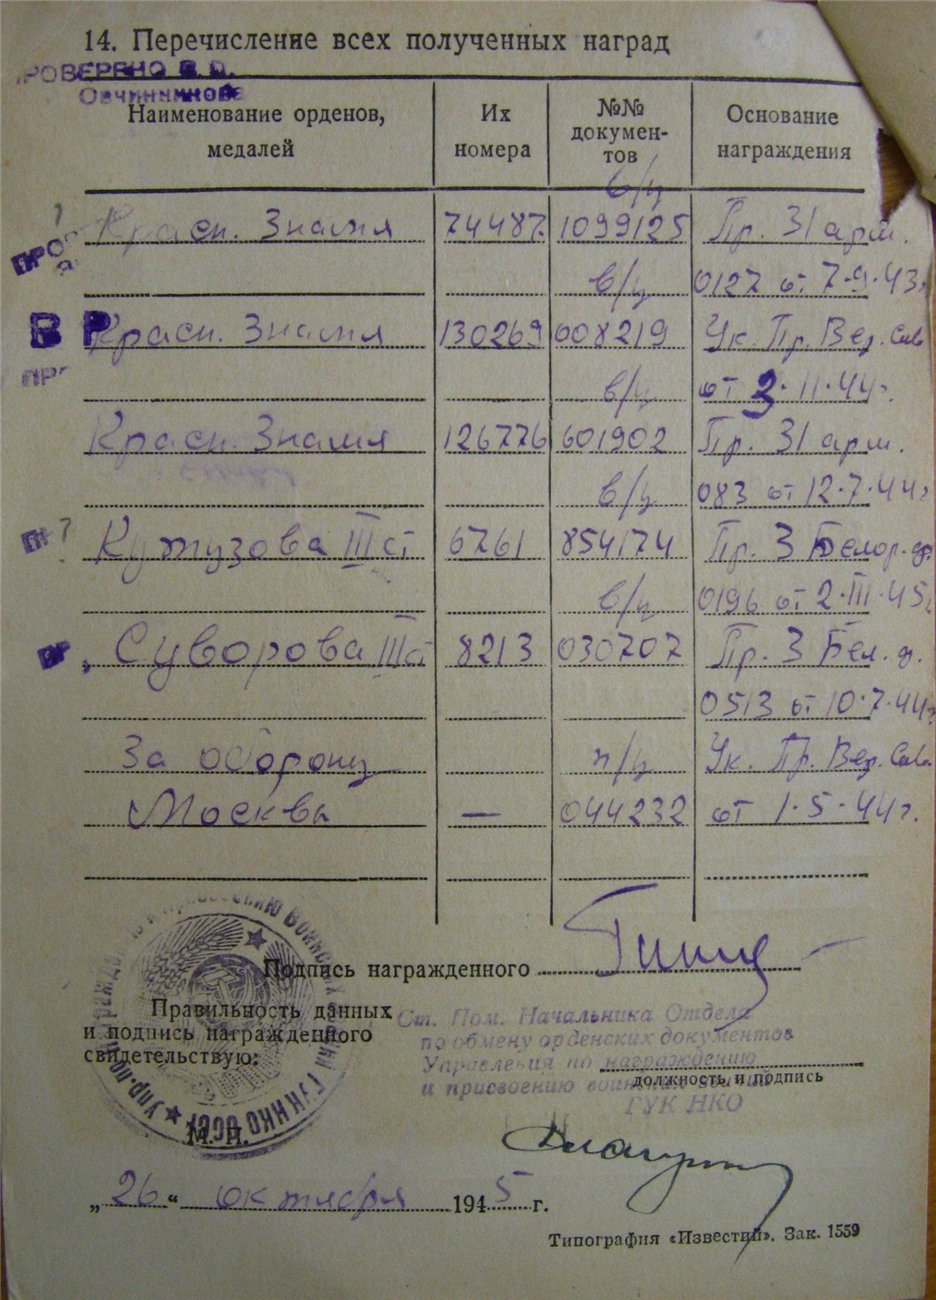 14. Перечисление всех полученных наград
ПРОВЕРЕНО
Овчинникова
Наименование орденов, медалей
Их номера
№№ документов
Основание награждения
в/ц
Красн. Знамя 74487 1099125 Пр. 31 арм.
в/ц 0127 от 7·9·43г
ВР Красн. Знамя 130269 008219 Ук. Пр. Вер. Сов
в/ц от 3·11·44г.
Красн. Знамя 126776 601902 Пр. 31 арм.
в/ц 083 от 12·7·44г
Кутузова III ст 6761 854174 Пр. 3 Белор. ф.
в/ц 0196 от 2·III·45г
ВР Суворова III ст 8213 030707 Пр. 3 Бел. ф.
0513 от 10·7·44г
За оборону п/ц Ук. Пр. Вер. Сов.
Москвы — 044232 от 1·5·44г.
Подпись награжденного
Правильность данных
и подпись награжденного
свидетельствую:
Ст. Пом. Начальника Отдела
по обмену орденских документов
Управления по награждению
и присвоению воинских званий
ГУК НКО
должность и подпись
М. П.
„26“ октября 1945 г.
Типография «Известий». Зак. 1559